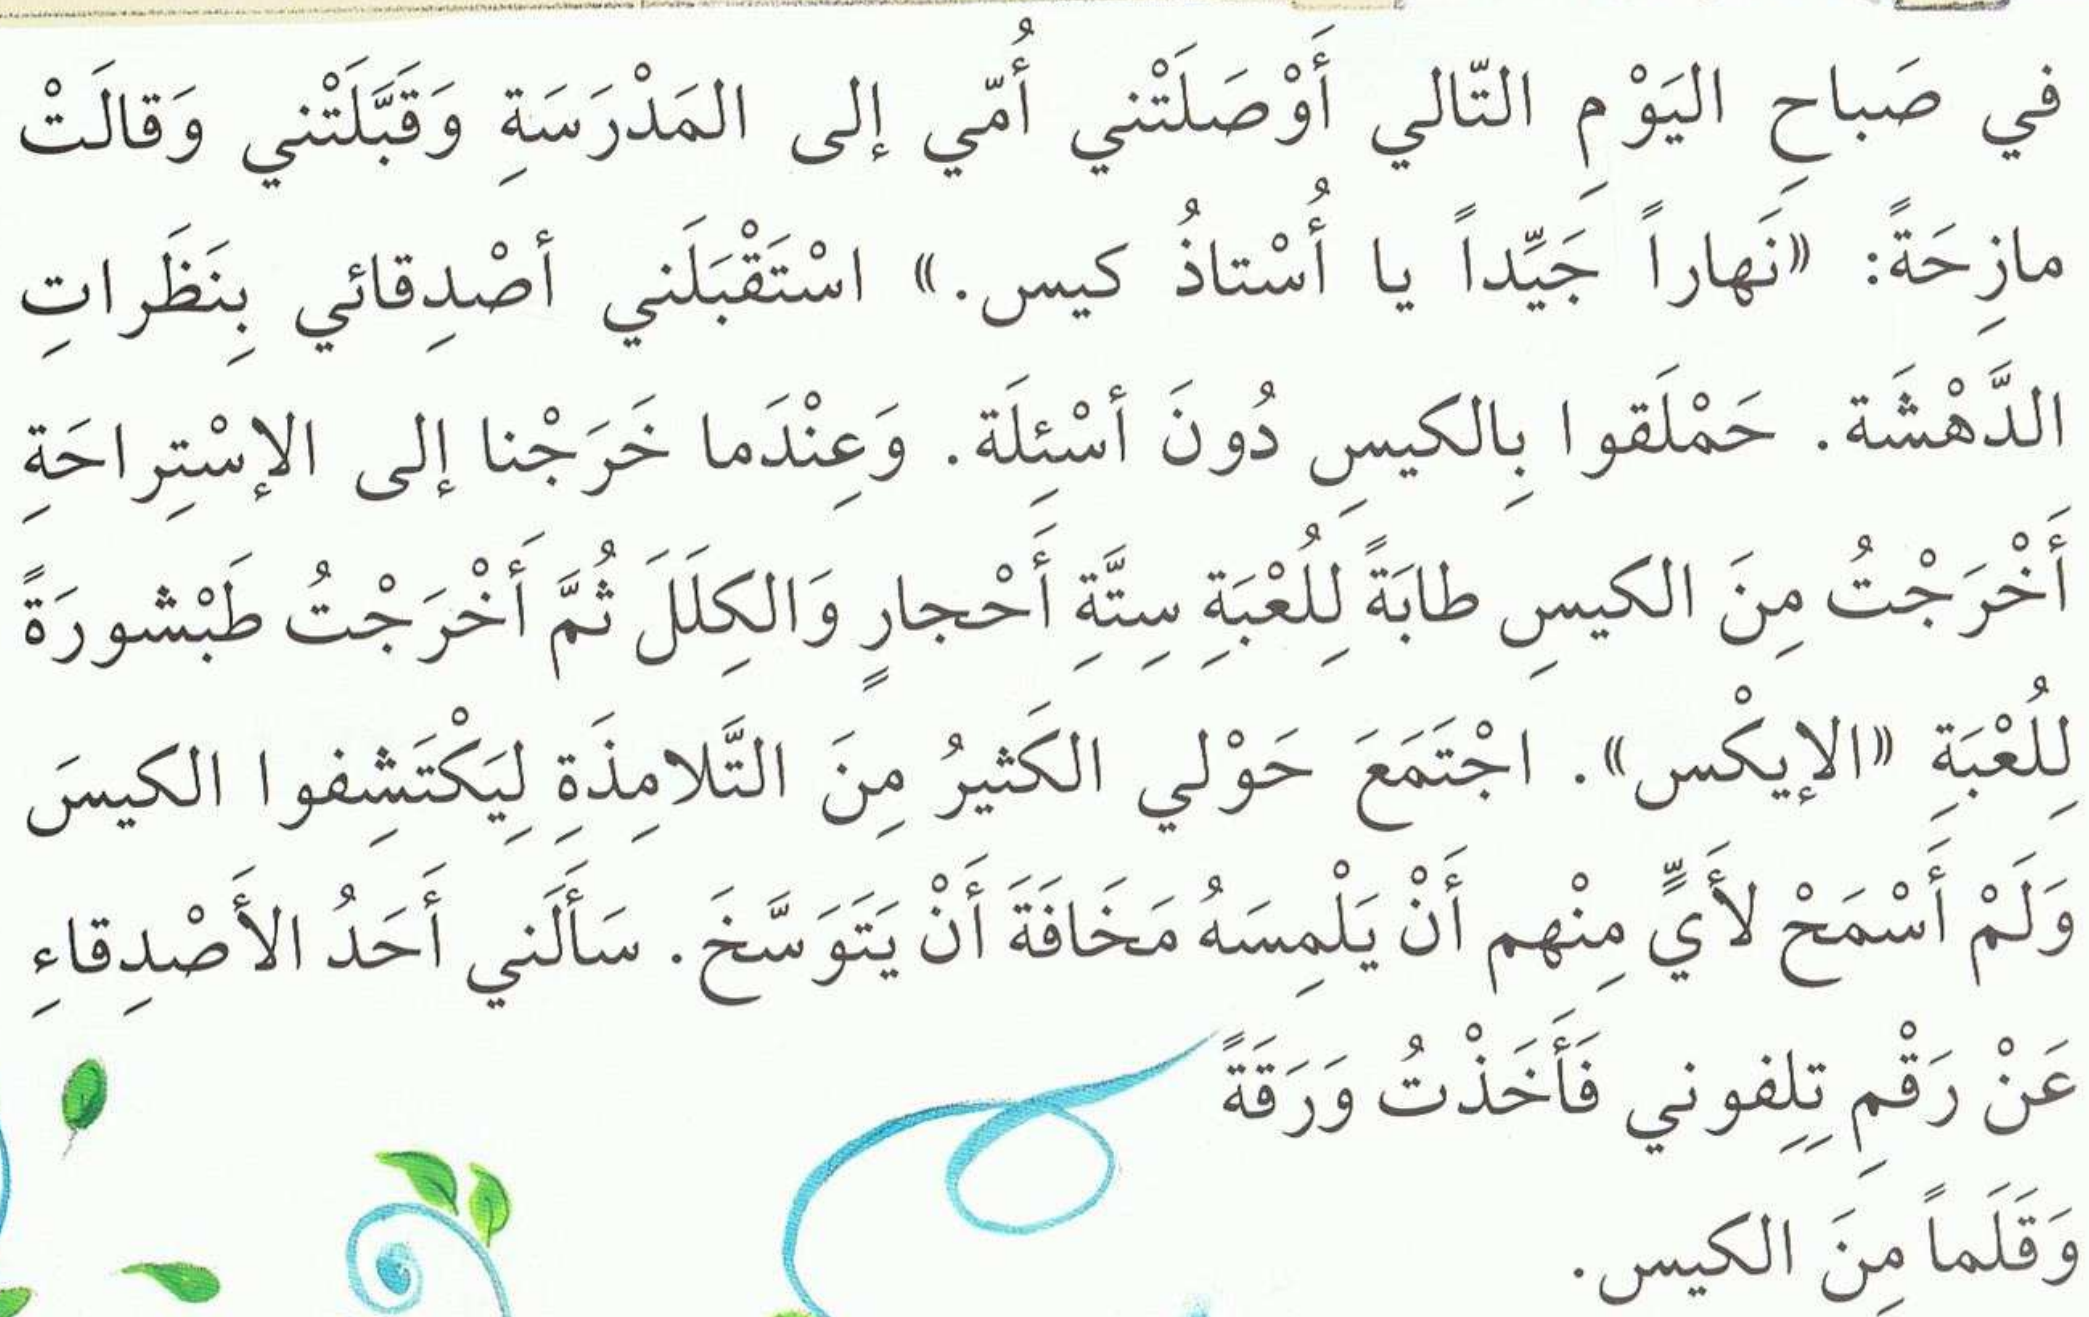 في صَباحِ اليَوْمِ التّالي أَوْصَلَتْني أُمّي إلى المَدْرَسَةِ وَقَبَّلَتْني وَقالَتْ
مازِحَةً: «نَهاراً جَيِّداً يا أُسْتاذُ كيس.» اسْتَقْبَلَني أصْدِقائي بِنَظَراتِ
الدَّهْشَة. حَمْلَقوا بِالكيسِ دُونَ أسْئِلَة. وَعِنْدَما خَرَجْنا إلى الإسْتِراحَةِ
أَخْرَجْتُ مِنَ الكيسِ طابَةً لِلُعْبَةِ سِتَّةِ أَحْجارٍ وَالكِلَلَ ثُمَّ أَخْرَجْتُ طَبْشورَةً
لِلُعْبَةِ «الإيكْس». اجْتَمَعَ حَوْلي الكَثيرُ مِنَ التَّلامِذَةِ لِيَكْتَشِفوا الكيسَ
وَلَمْ أَسْمَحْ لأَيٍّ مِنْهم أَنْ يَلْمِسَهُ مَخَافَةَ أَنْ يَتَوَسَّخَ. سَأَلَني أَحَدُ الأَصْدِقاءِ
عَنْ رَقْمِ تِلِفوني فَأَخَذْتُ وَرَقَةً
وَقَلَماً مِنَ الكيس.